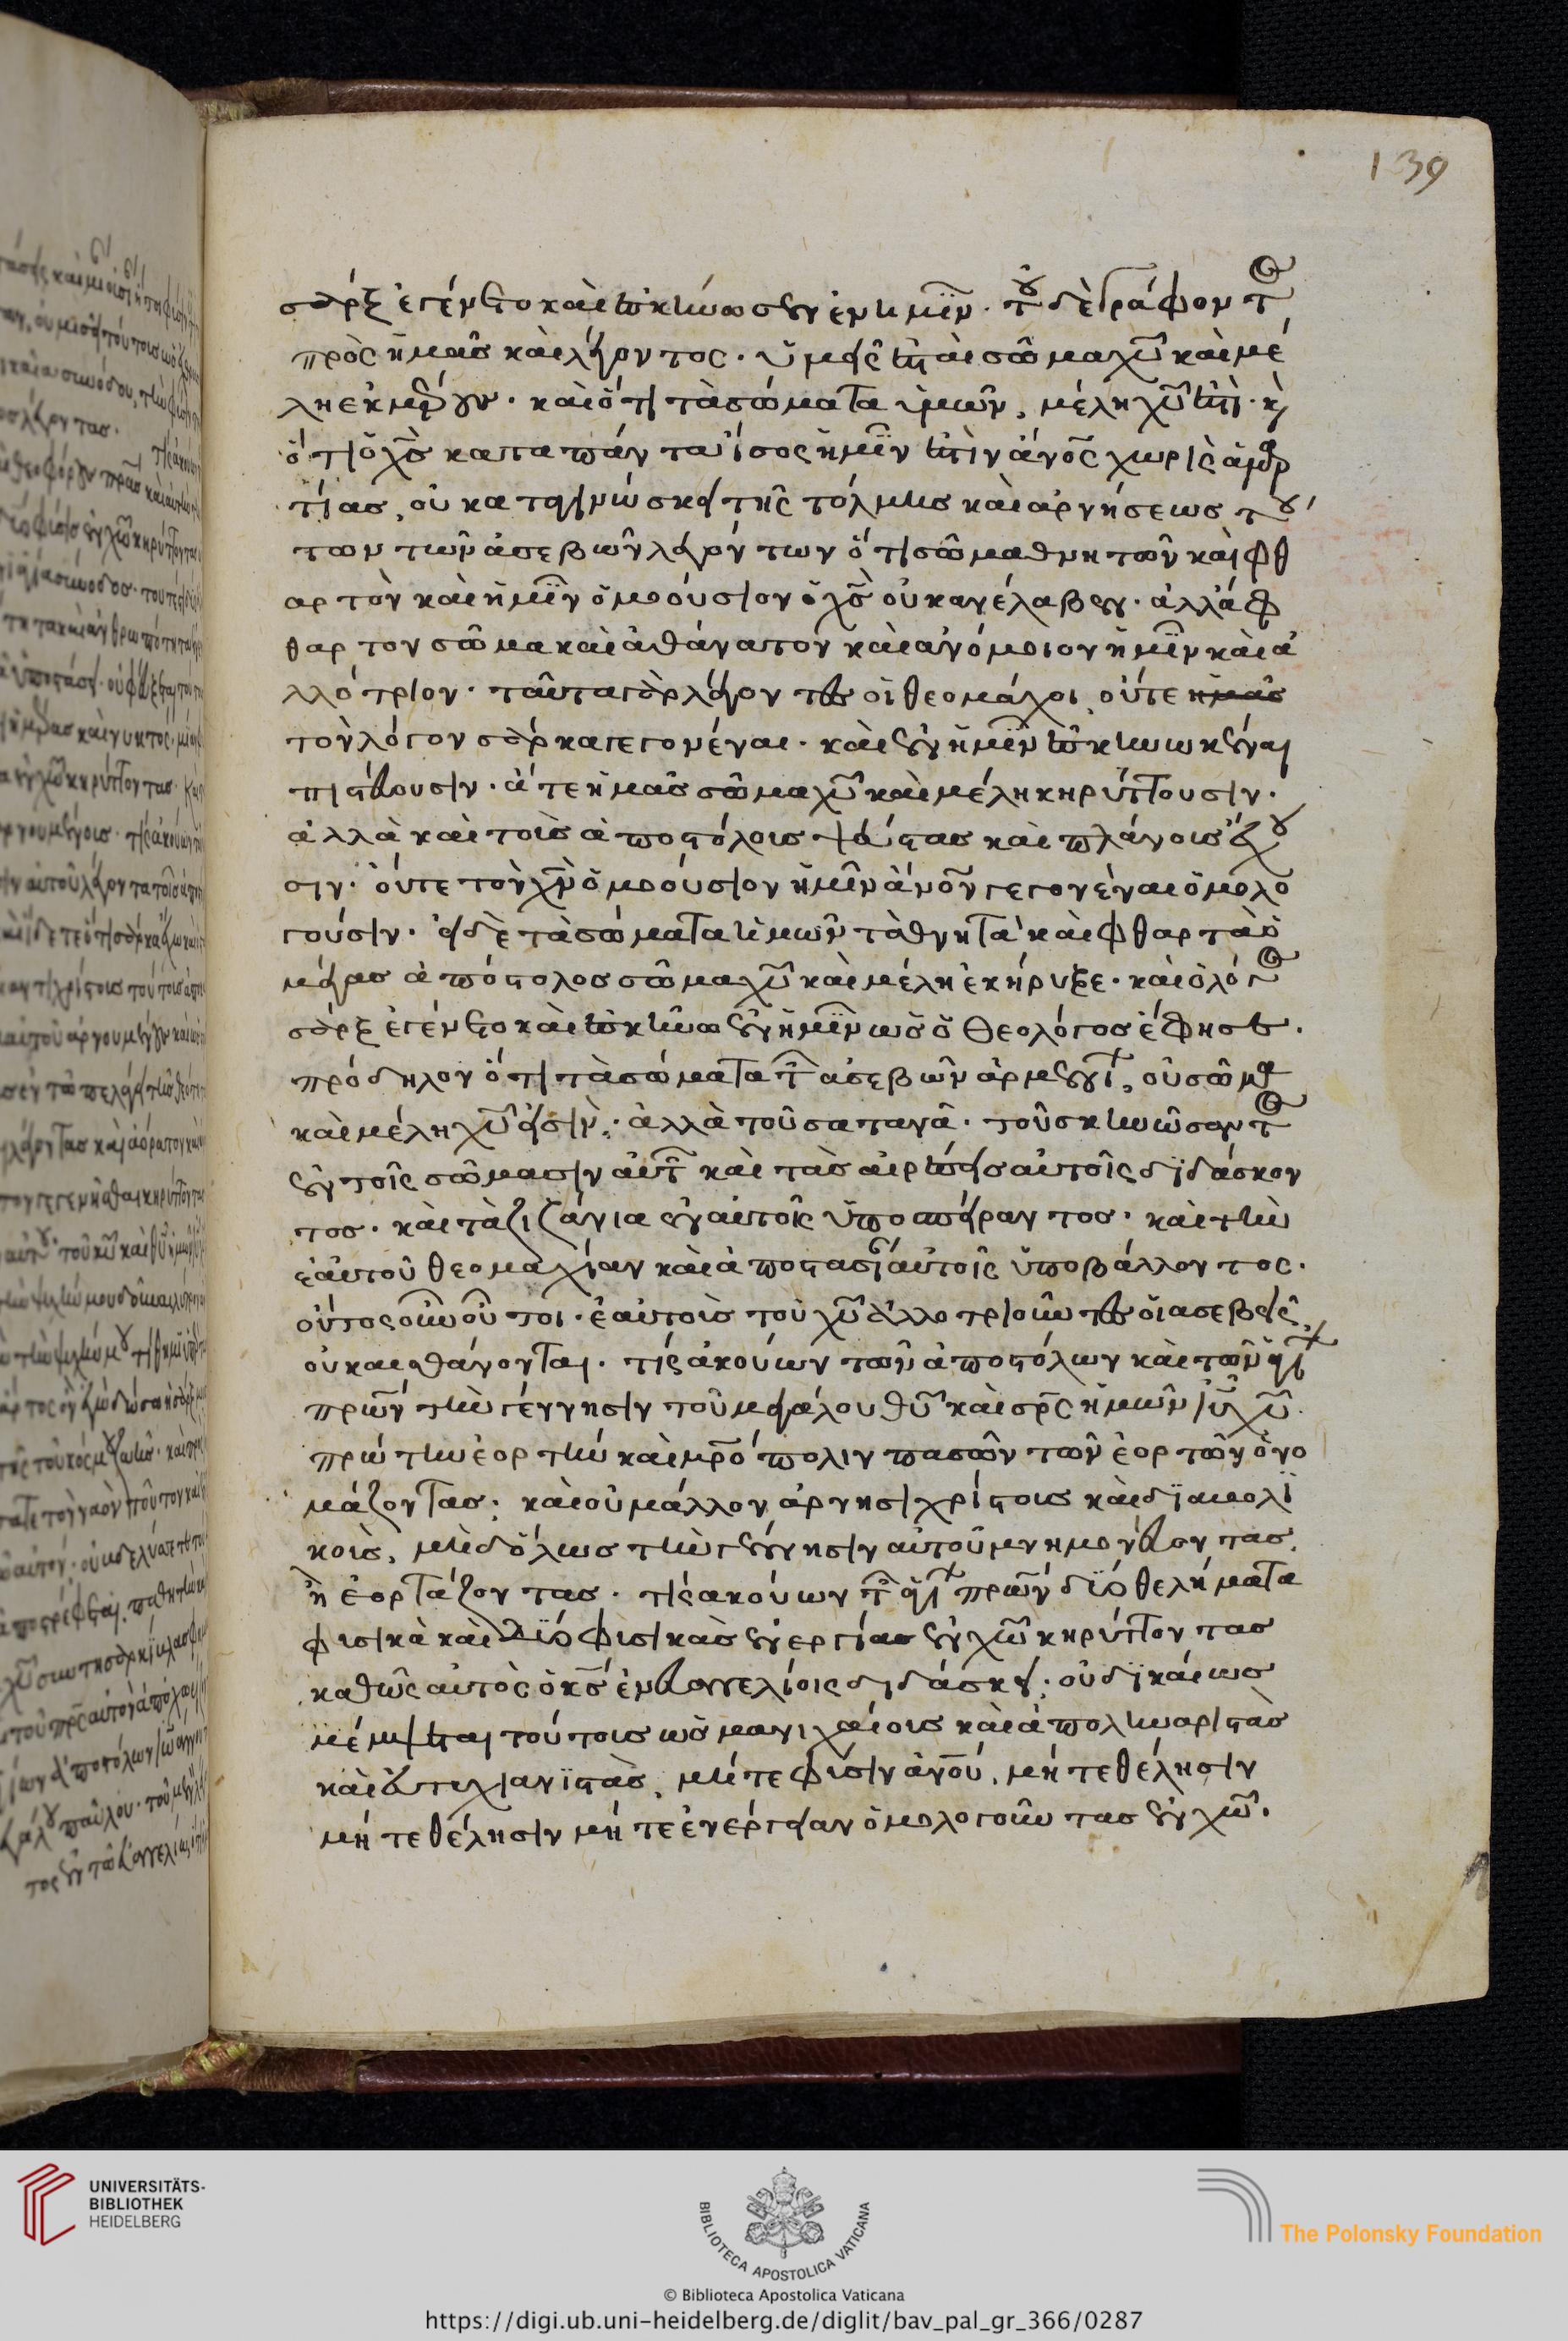 139
σὰρξ ἐγένετο καὶ ἐσκήνωσεν ἐν ἡμῖν. τοῦ δὲ γράφοντος
πρὸς ἡμᾶς καὶ λέγοντος. ὑμεῖς ἐστὲ σῶμα χῦ καὶ μέ
λη ἐκ μέρους. καὶ ὅτι τὰ σώματα ὑμῶν, μέλη χῦ ἐστί. καὶ
ὅτι ὁ χς κατὰ πάντα ἴσος ἡμῖν ἐστὶν ἄνος χωρὶς ἁμαρ
τίας, οὐ καταγινώσκει τῆς τόλμης καὶ ἀρνήσεως τού
των τῶν ἀσεβῶν λεγόντων ὅτι σῶμα θνητὸν καὶ φθ
αρτὸν καὶ ἡμῖν ὁμοούσιον ὁ χς οὐκ ἀνέλαβεν. ἀλλ' ἄφ
θαρτον σῶμα καὶ ἀθάνατον καὶ ἀνόμοιον ἡμῖν καὶ ἀ
λλότριον. ταῦτα γὰρ λέγοντες οἱ θεομάχοι, οὔτε ἡμᾶς
τὸν λόγον σάρκα γεγονέναι. καὶ ἐν ἡμῖν ἐσκηνωκέναι
πιστεύουσιν. οὔτε ἡμᾶς σῶμα χῦ καὶ μέλη κηρύττουσιν.
ἀλλὰ καὶ τοὺς ἀποστόλους ψεύστας καὶ πλάνους ἔχου
σιν. οὔτε τὸν χν ὁμοούσιον ἡμῖν ἄνον γεγονέναι ὁμολο
γοῦσιν. εἰ δὲ τὰ σώματα ἡμῶν τὰ θνητὰ καὶ φθαρτὰ ὁ
μέγας ἀπόστολος σῶμα χῦ καὶ μέλη ἐκήρυξε. καὶ ὁ λόγος
σὰρξ ἐγένετο καὶ ἐσκήνωσεν ἐν ἡμῖν ὡς ὁ θεολόγος ἔφησε.
πρόδηλον ὅτι τὰ σώματα τῶν ἀσεβῶν ἀρμενίων, οὐ σῶμα
καὶ μέλη χῦ εἰσίν. ἀλλὰ τοῦ σατανᾶ. τοῦ σκηνώσαντος
ἐν τοῖς σώμασιν αὐτῶν καὶ τὰς αἱρέσεις αὐτοῖς διδάσκον
τος. καὶ τὰ ζιζάνια ἐν αὐτοῖς ὑποσπείραντος. καὶ τὴν
ἑαυτοῦ θεομαχίαν καὶ ἀποστασίαν αὐτοῖς ὑποβάλλοντος.
οὕτως οὖν οὗτοι. ἑαυτοὺς τοῦ χῦ ἀλλοτριοῦντες οἱ ἀσεβεῖς,
οὐκ αἰσθάνονται. τίς ἀκούων τῶν ἀποστόλων καὶ τῶν ἁγίων
πρων τὴν γέννησιν τοῦ μεγάλου θῦ καὶ σρς ἡμῶν ιυ χῦ
πρώτην ἑορτὴν καὶ μρόπολιν πασῶν τῶν ἑορτῶν ὀνο
μάζοντας. καὶ οὐ μᾶλλον ἀρνησιχρίστους καὶ διαβολι
κοὺς, μὴ δ' ὅλως τὴν γέννησιν αὐτοῦ μνημονεύοντας.
ἢ ἑορτάζοντας. τίς ἀκούων τῶν ἁγίων πρων δύο θελήματα
φυσικὰ καὶ δύο φυσικὰς ἐνεργείας ἐν χῶ κηρύττοντας
καθὼς αὐτὸς ὁ κς ἐν εὐαγγελίοις διδάσκει. οὐ δικαίως
μέμψεται τούτοις ὡς μανιχαίοις καὶ ἀπολιναριστὰς
καὶ εὐτυχιανιστὰς, μήτε φύσιν ἀνου, μήτε θέλησιν
μήτε θέλησιν μήτε ἐνέργειαν ὁμολογοῦντας ἐν χῶ.
UNIVERSITÄTS-
BIBLIOTHEK
HEIDELBERG
BIBLIOTECA APOSTOLICA VATICANA
The Polonsky Foundation
© Biblioteca Apostolica Vaticana
https://digi.ub.uni-heidelberg.de/diglit/bav_pal_gr_366/0287